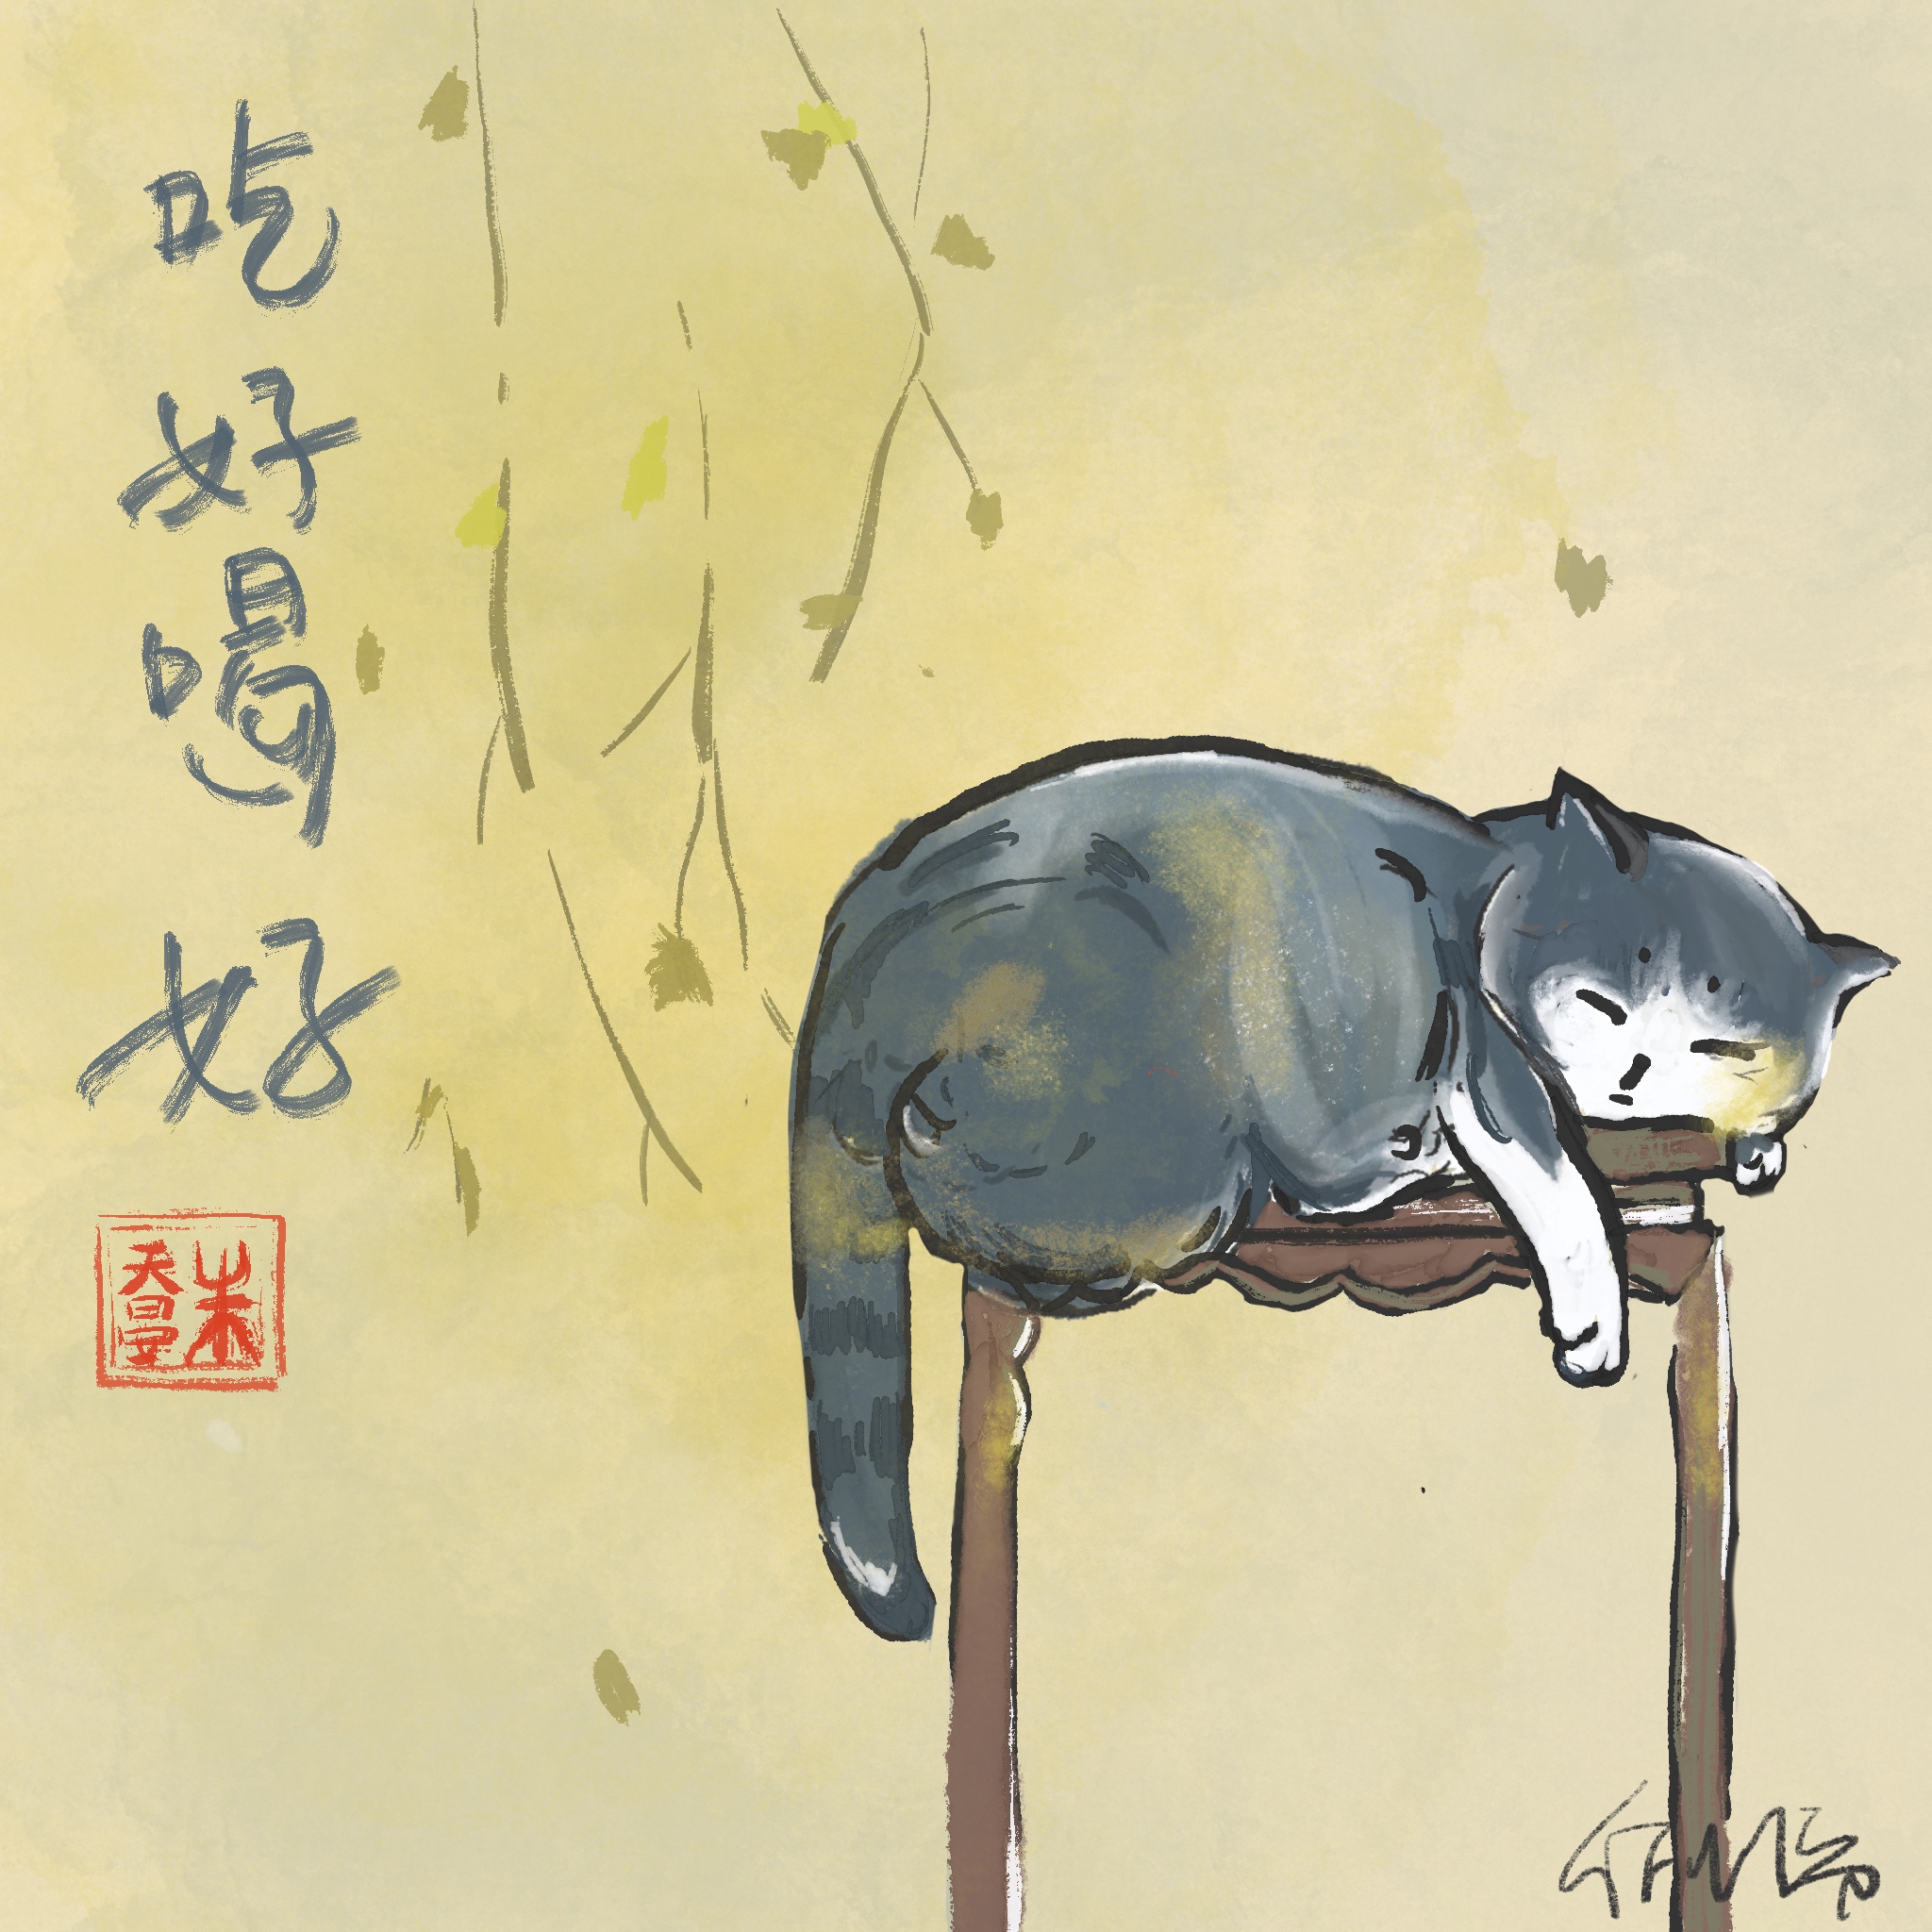 吃好喝好
朱天曼